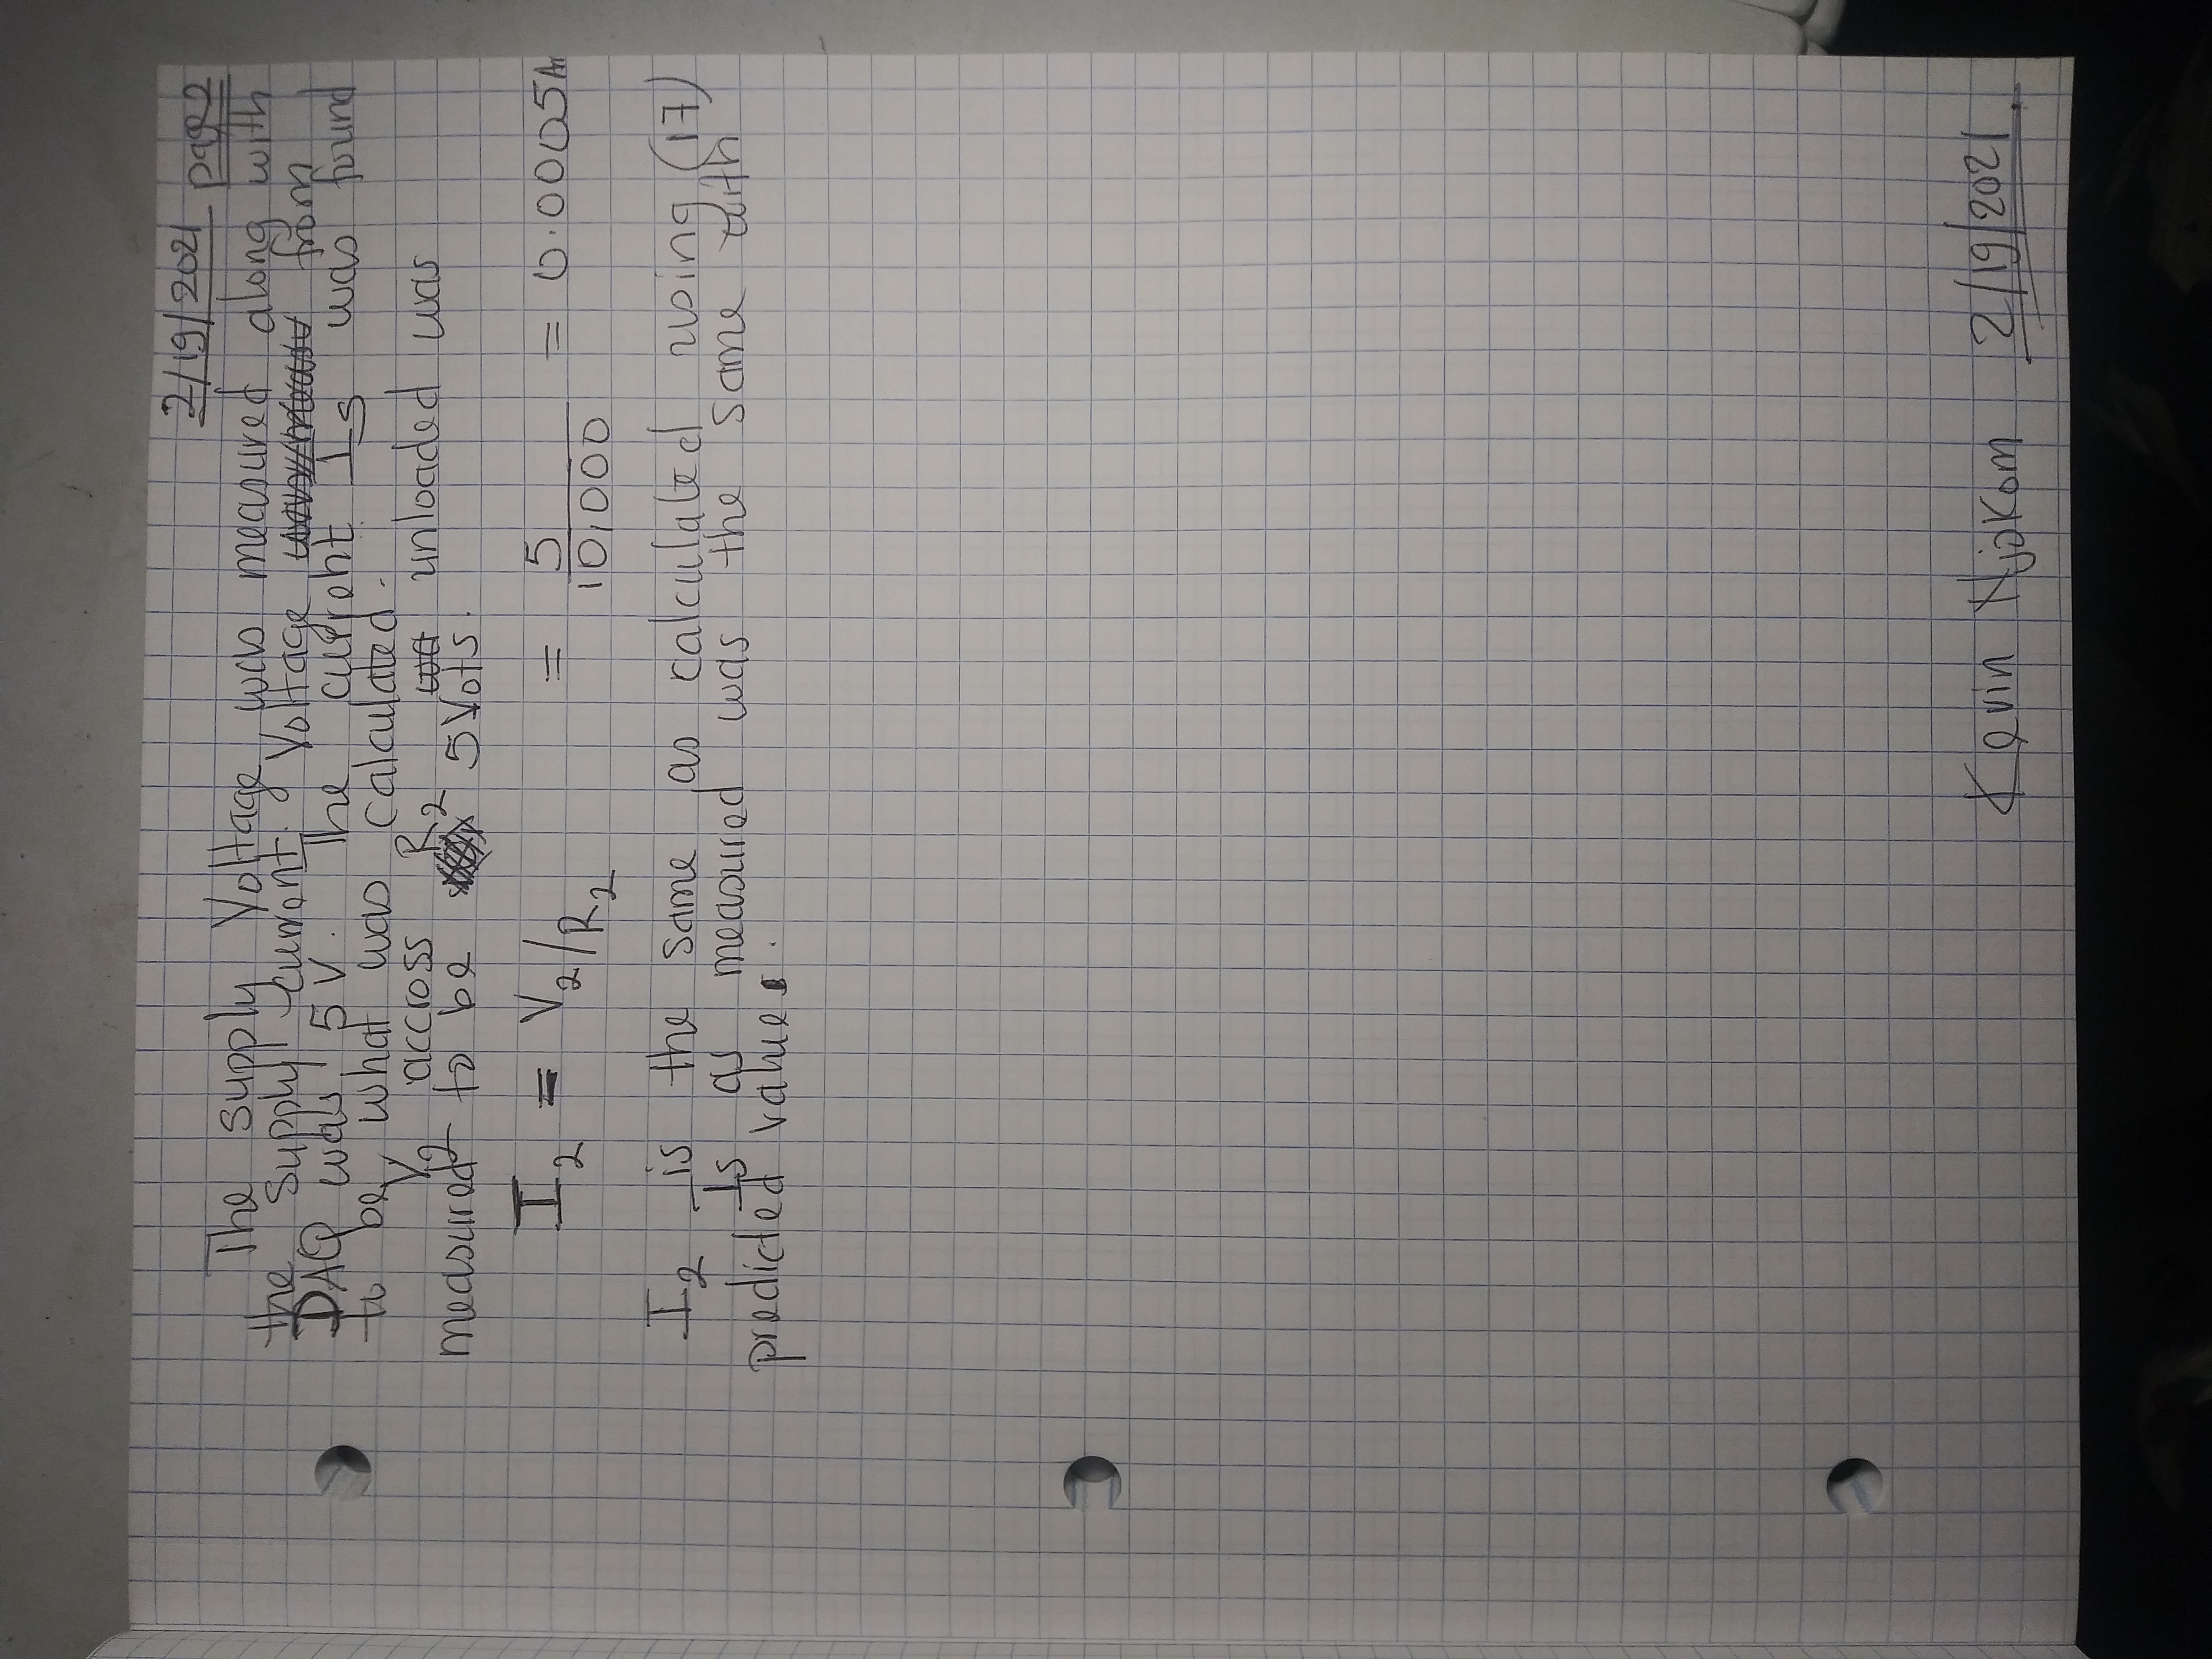 2/19/2021 page 2
The supply Voltage was measured along with
the supply current. Voltage from
DAQ was 5V. The current Is was found
to be what was calculated.
V2 accross R2 unloaded was
measured to be 5Vots.
I2 = V2/R2 = 5/10,000 = 0.0005Am
I2 is the same as calculated using (17)
Is as measured was the same with
predicted values.
Kevin Njokom 2/19/2021.